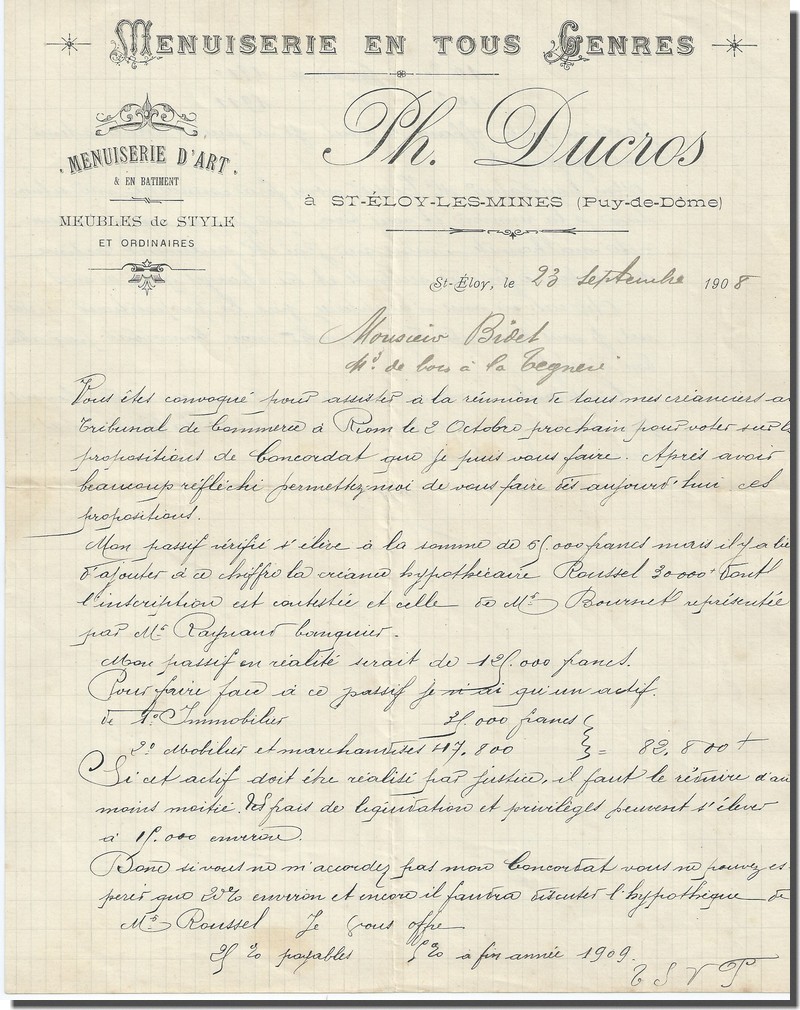 MENUISERIE EN TOUS GENRES
MENUISERIE D'ART
& EN BATIMENT
MEUBLES de STYLE
ET ORDINAIRES
Ph. Ducros
à ST-ÉLOY-LES-MINES (Puy-de-Dôme)
St-Éloy, le 23 septembre 1908
Monsieur Bidet
Md de bois à la
Vous êtes convoqué pour assister à la réunion de tous mes créanciers au
Tribunal de Commerce à Riom le 2 Octobre prochain pour voter sur l
propositions de Concordat que je puis vous faire. Après avoir
beaucoup réfléchi permettez-moi de vous faire dès aujourd'hui ces
propositions.
Mon passif vérifié s'élève à la somme de 65.000 francs mais il y a lie
d'ajouter à ce chiffre la créance hypothécaire Roussel 30000 f dont
l'inscription est contestée et celle de Mr Bournet représentée
par Mr Raynaud banquier.
Mon passif en réalité serait de 125.000 francs.
Pour faire face à ce passif je n'ai qu'un actif.
de 1o Immobilier 35.000 francs
2o Mobilier et marchandises 47.800 = 82.800 f
Si cet actif doit être réalisé par justice, il faut le réduire d'au
moins moitié. Les frais de liquidation et privilèges peuvent s'élever
à 15.000 environ.
Donc si vous ne m'accordez pas mon Concordat vous ne pouvez es-
pérer que 20% environ et encore il faudra discuter l'hypothèque de
Mr Roussel Je vous offre
25 % payables 5% à fin année 1909.
T S V P